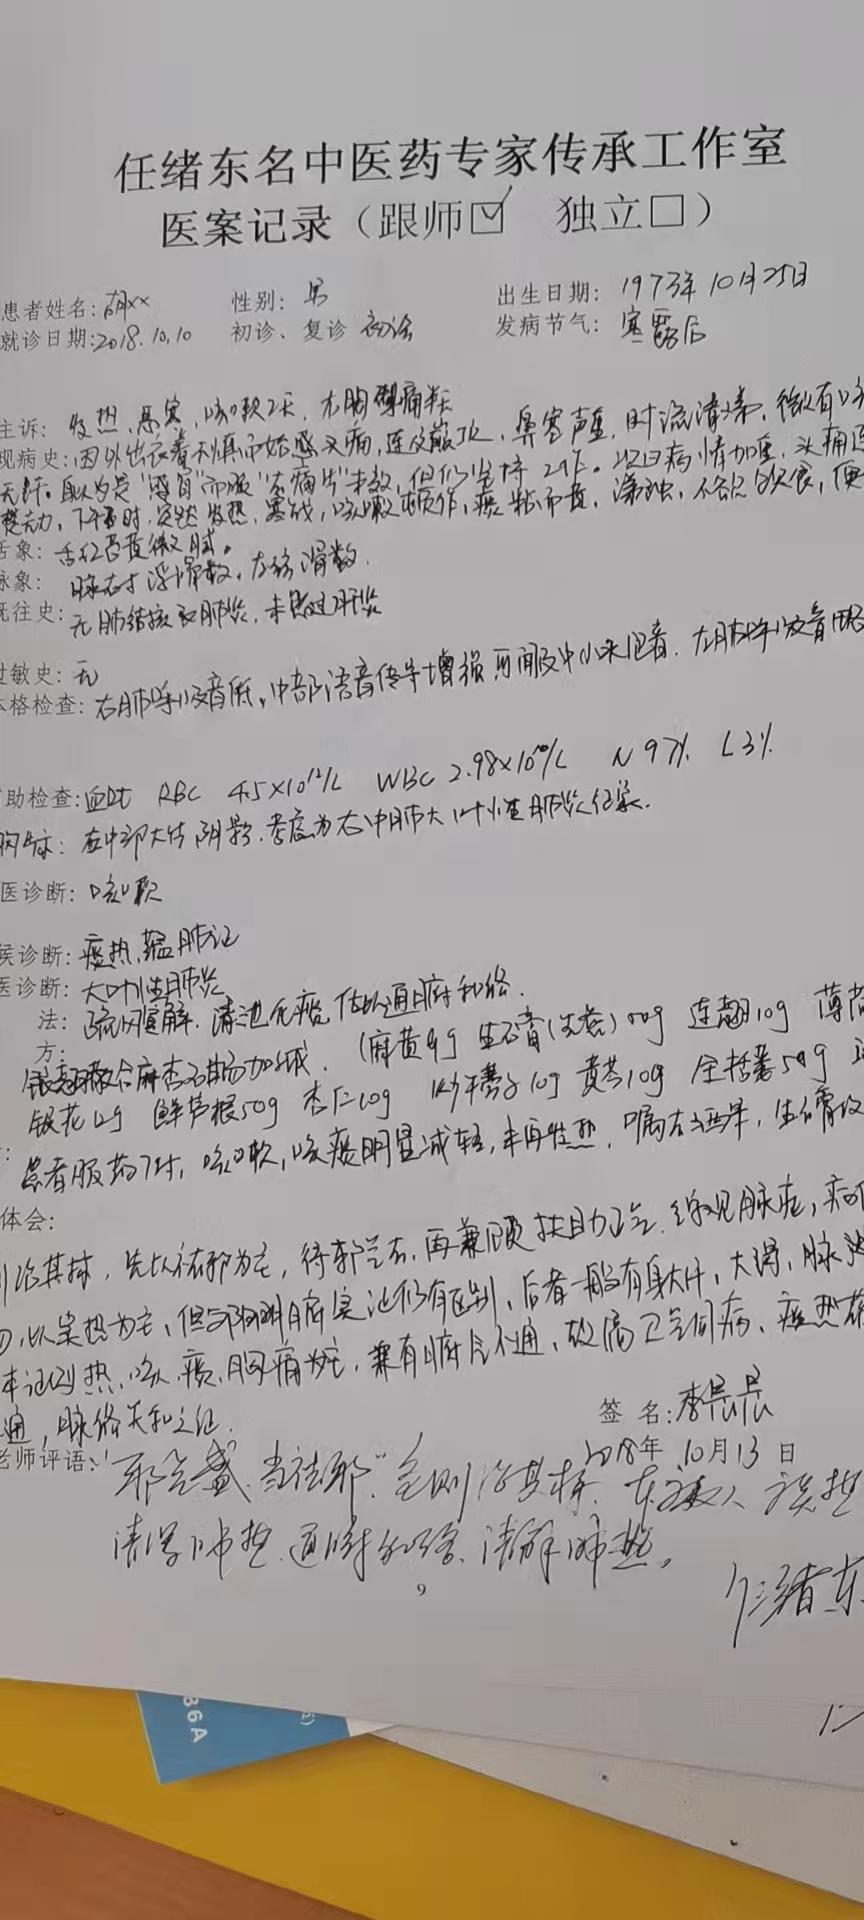 任绪东名中医药专家传承工作室
医案记录（跟师☑ 独立☐）
患者姓名：胡×× 性别：男 出生日期：1973年10月25日
就诊日期：2018.10.10 初诊、复诊 初诊 发病节气：寒露后
主诉：发热、恶寒、咳嗽2天，右胸痛半天
现病史：因外出衣着不慎而始感头痛，连及巅顶，鼻塞声重，时流清涕，微有
自认为是“感冒”而服“去痛片”未效，但仍坚持工作。 病情加重，头痛
下午 时，突然发热，寒战，咳嗽频作，痰粘而黄，不欲饮食，便
舌象：舌红苔黄微腻。
脉象：脉右寸浮滑数，左弦滑数．
既往史：无肺结核及肺炎，未患过肝炎
过敏史：无
体格检查：右肺呼吸音低，中部语音传导增强可闻及中小水泡音．左肺呼吸音
助检查：血Rt RBC 4.5×10¹²/L WBC 2.98×10¹⁰/L N 97% L3%
胸片：右中部大片阴影．考虑为右中肺大叶性肺炎征象．
医诊断：咳嗽
候诊断：痰热蕴肺证
医诊断：大叶性肺炎
法：疏风宣解．清泄化痰 佐以通腑和络．
方：
银翘散合麻杏石甘汤加减．（麻黄9g 生石膏（先煎）50g 连翘10g 薄荷
银花12g 鲜芦根50g 杏仁10g 炒牛蒡子10g 黄芩10g 全栝蒌50g
患者服药7付，咳嗽，咳痰明显减轻，未再发热．嘱 生石膏改
体会：
则治其标，先以祛邪为主，待邪去后，再兼顾扶助正气．综观脉症，
以实热为主，但与阳明腑实证仍有区别，后者一般有身大汗，大渴，脉洪
本证以热、咳、痰、胸痛为主，兼有腑气不通，故属卫气同病、痰热
通，脉络失和之证．
签名：李晨晨
2018年10月13日
老师评语：邪气盛，当祛邪“急则治其标．
清 肺热 通腑和络．清解肺热。
任绪东
9
86A